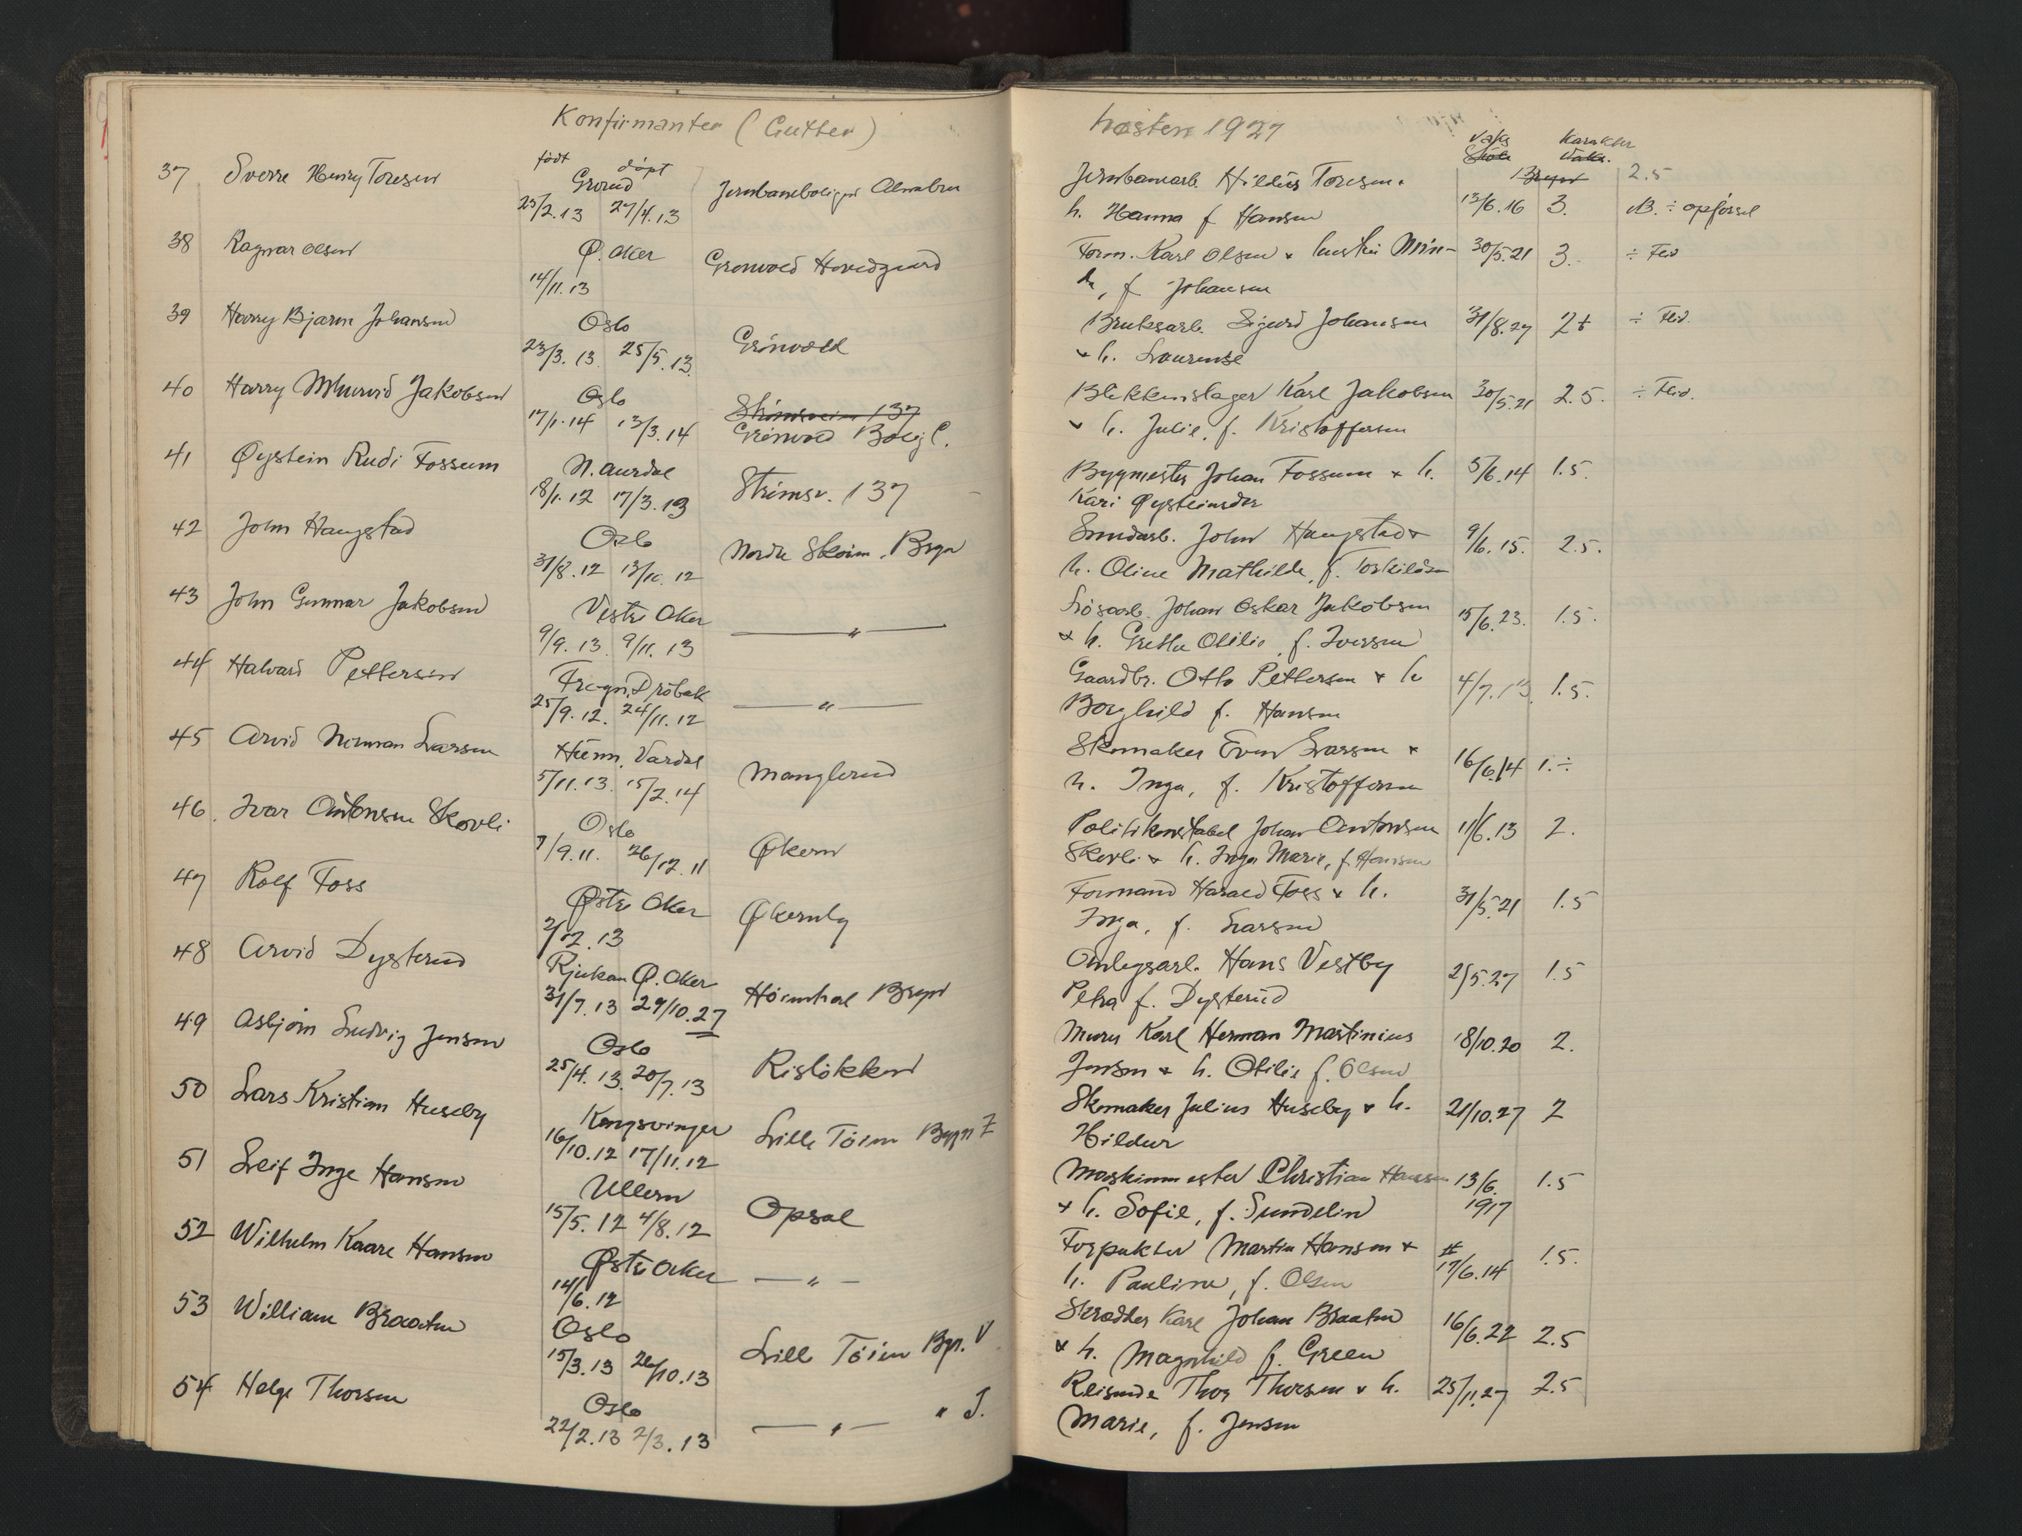 Konfirmanter (Gutter)
født døpt
37 Sverre Henry Toresen Grorud Jernbaneboliger Alnabru
23/2.13 27/4.13
38 Ragnar Olsen Ø. Aker Grønvold Hovedgaard
14/11.13
39 Harry Bjarne Johansen Oslo Grönvold
23/3.13 25/5.13
40 Harry Jakobsen Oslo Strömsveien 137
17/1.14 13/3.14 Grönvold Bolig C.
41 Øystein Rudi Fossum N. Aurdal Strömsv. 137
18/1.12 17/3.13
42 John Haugstad Oslo Nordre Skøien, Bryn
31/8.12 13/10.12
43 John Gunnar Jakobsen Vestre Aker — " —
9/9.13 9/11.13
44 Halvard Pettersen Frogn, Drøbak — " —
25/9.12. 24/11.12
45 Arvid Norman Larsen Hunn, Vardal Manglerud
5/11.13. 15/2.14
46. Ivar Antonsen Skovli Oslo Økern
7/9.11. 26/12.11
47 Rolf Foss Østre Aker Økernby
2/12.13
48 Arvid Dysterud Rjukan Ø. Aker Höienhal Bryn
31/7.13 29/10.27
49 Asbjörn Ludvig Jensen Oslo Rislökken
25/4.13. 20/7.13
50 Lars Kristian Huseby Kongsvinger Lille Töien Bygn Z
16/10.12 17/11.12
51 Leif Inge Hansen Ullern Opsal
15/5.12 4/8.12
52 Wilhelm Kaare Hansen Østre Aker — " —
14/6.12
53 William Braaten Oslo Lille Töien Bgn. V
15/3.13 26/10.13
54 Helge Thorsen Oslo — " — " J.
22/2.13 2/3.13
høsten 1927
Vaks Karakter
Skole Vaks.
Jernbanearb. Hildus Toresen + Bryn 2.5
h. Hanna f Hansen 13/6.16 3. NB. ÷ opførsel
Form. Karl Olsen + hustru Min- 30/5.21 3. ÷ Flid
da, f Johansen
Bruksarb. Sigurd Johansen 31/8.27 2+ ÷ Flid.
+ h. Laurense
Blikkenslager Karl Jakobsen 30/5.21 2.5. ÷ Flid.
+ h. Julie, f. Kristoffersen
Bygmester Johan Fossum + h. 5/6.14 1.5.
Kari Øysteinsdr
John Haugstad + 9/6.15. 2.5.
h. Oline Mathilde, f. Torkildsen
Løsarb. Johan Oskar Jakobsen 15/6.23. 1.5.
+ h. Grethe Otilie, f. Iversen
Gaardbr. Otto Pettersen + h 4/7.13. 1.5.
Borghild f. Hansen
Skomaker Even Larsen + 16/6.14 1.÷
h. Inga, f. Kristoffersen
Politikonstabel Johan Antonsen 11/6.13 2.
Skovli + h. Inga Marie, f. Hansen
Formand Harald Foss + h. 31/5.21 1.5
Inga, f. Larsen
Anlegsarb. Hans Vestby 2/5.27 1.5
Petra f. Dysterud
Murer Karl Herman Martinius 18/10.20 2.
Jensen + h. Otilie f. Olsen
Skomaker Julius Huseby + h. 21/10.27 2
Hildur
Maskinmester Christian Hansen 13/6. 1.5
+ h. Sofie, f. Sundelin 1917
Forpakter Martin Hansen + 17/6.14 1.5.
h. Pauline, f. Olsen
Skrædder Karl Johan Braaten 16/6.22 2.5
+ h. Magnhild f. Green
Reisende Thor Thorsen + h. 25/11.27 2.5
Marie, f. Jensen